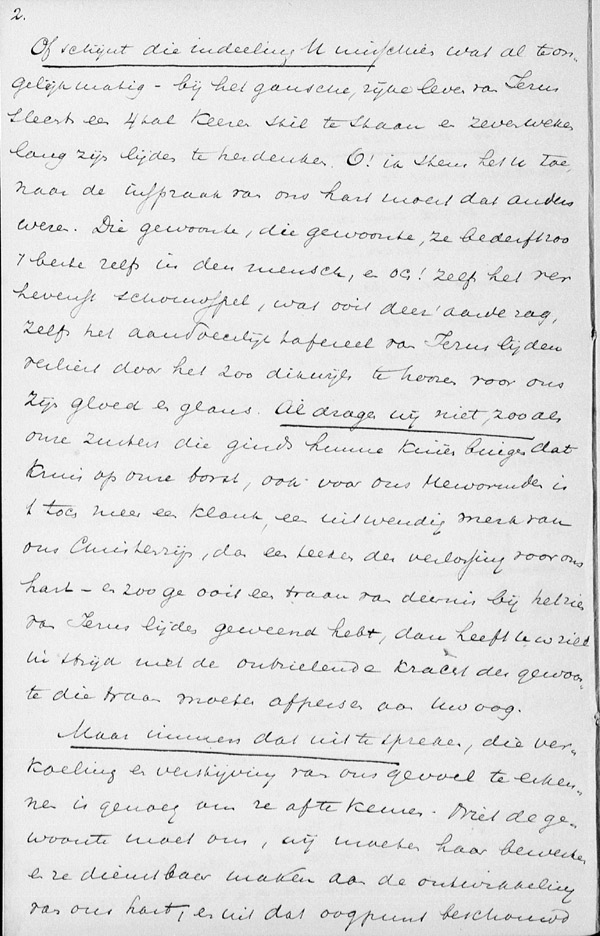 2.
Of schijnt die indeeling U misschien wat al te on-
gelijkmatig – bij het gansche, rijke leven van Jezus
slechts een 4tal keeren stil te staan en zeven weken
lang zijn lijden te herdenken. O! ik stem het u toe,
naar de inspraak van ons hart moest dat anders
wezen. Die gewoonte, die gewoonte, ze bederft zoo
't beste zelfs in den mensch, en och! zelfs het ver
hevenst schouwspel, wat ooit deez' aarde zag,
zelfs het aandoenlijk tafereel van Jezus lijden
verliest door het zoo dikwijls te hooren voor ons
zijn gloed en glans. Al dragen wij niet, zooals
onze zusters die ginds hunne knieën buigen dat
kruis op onze borst, ook voor ons Hervormden is
't toch meer een klank, een uitwendig merk van
ons Christenzijn, dan een teeken der verlossing voor ons
hart – en zoo ge ooit een traan van deernis bij het zien
van Jezus lijden geweend hebt, dan heeft Uw ziel
in strijd met de ontzielende kracht der gewoon-
te die traan moeten afpersen aan Uw oog.
Maar immers dat uit te spreken, die ver-
koeling en verstijving van ons gevoel te erken-
nen is genoeg om ze af te keuren. Niet de ge-
woonte moet ons, wij moeten haar bewerken
en ze dienstbaar maken aan de ontwikkeling
van ons hart, en uit dat oogpunt beschouwd